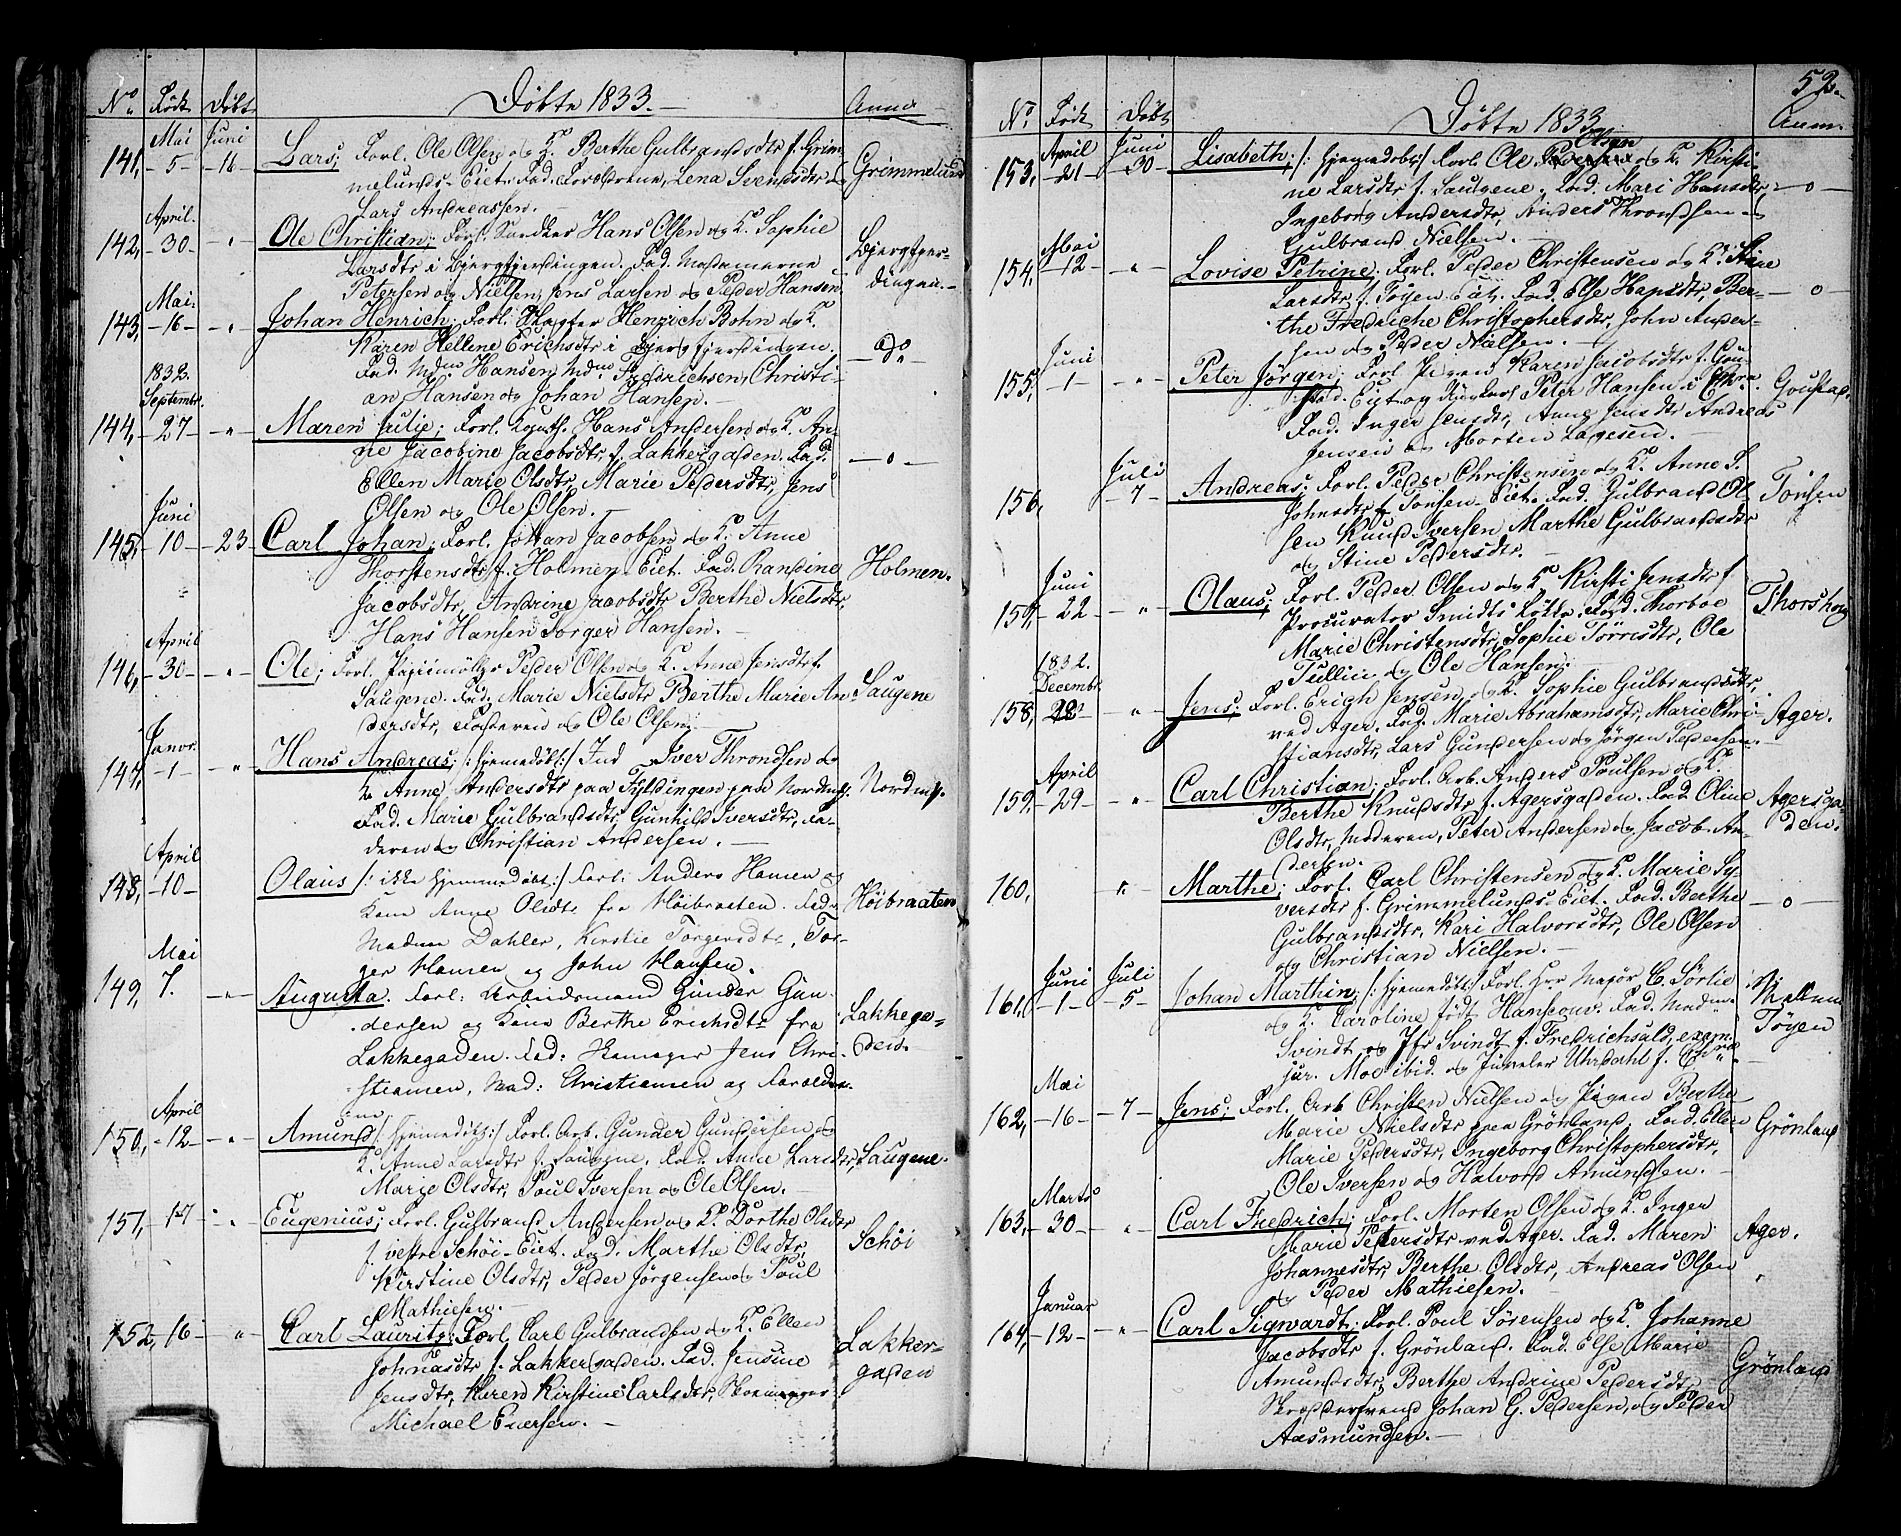 No. Født Døbt Døbte 1833.— Anm.
141, Mai 5 Juni 16 Lars; Forl. Ole Olsen og K. Berthe Gulbrandsdtr f. Grim-
melunds-Eiet. Fad. Lena Svendsdtr Grimmelund
Lars Andreassen.
142, April. 30 " Ole Christian; Forl. Hans Olsen og K. Sophie
Larsdtr i Bjergfjerdingen. Fad. Madamerne Bjergfjer-
Petersen og Nielsen, Jens Larsen og Peder Hansen. dingen.—
143, Mai. 16 " Johan Henrich; Forl. Henrich Bohn og K.
Karen Hellene Erichsdtr i Bjergfjerdingen. do
Fad. Mdm Hansen, Mdm Fredrichsen, Christi-
an Hansen og Johan Hansen.—
144, 1832. Septembr. 27 " Maren Julie; Forl. Hans Andersen og K. An-
ne Jacobine Jacobsdtr, f. Lakkergaden. Fad. —o—
Ellen Marie Olsdtr, Marie Pedersdtr, Jens
Olsen og Ole Olsen.—
145, Juni 10 23 Carl Johan; Forl. Johan Jacobsen og K. Anne
Thorstensdtr f. Holmen-Eiet. Fad. Randine Holmen.
Jacobsdtr, Andrine Jacobsdtr Berthe Nielsdtr,
Hans Hansen Torger Hansen.—
146, April 30 " Ole; Forl. Papiirmøller Peder Olsen og K. Anne Jensdtr f.
Saugene. Fad. Marie Nielsdtr Berthe Marie An- Saugene
dersdtr, Faderen og Ole Olsen.—
147, Janvr. 1 " Hans Andreas; /: hjemedøbt :/ Ind Iver Throndsen og
K. Anne Andersdtr paa Fyldingen paa Nordm. Nordm.
Fad. Marie Gulbrandsdtr, Gunhild Iversdtr, Fa-
deren og Christian Andersen.—
148, April 10 Olaus /: ikke hjemmedøbt :/ Forl: Anders Hansen og
Kone Anne Olsdtr fra Høibraaten. Fad. Høibraaten
Madme Dahler, Kirstie Torgersdtr, Tor-
ger Hansen og John Hansen.
149, Mai 7. " Augusta. Forl: Arbeidsmand Gunder Gun-
dersen og Kone Berthe Erichsdtr fra Lakkega-
Lakkegaden. Fad: Skomager Jens Chri- den.
stiansen, Mad: Christiansen og Forældre-
ne
150, April 12 " Amund /: hjemedøbt :/ Forl. Arb. Gunder Gundersen og
K. Anne Larsdtr f. Saugene. Fad. Anne Larsdtr, Saugene.
Marie Olsdtr, Poul Iversen og Ole Olsen.—
151, 17 " Eugenius; Forl. Gulbrand Andersen og K. Dorthe Olsdtr
f. vestre Schøi-Eiet. Fad. Marthe Olsdtr, Schøi
Kirstine Olsdtr, Peder Jørgensen og Poul
Mathiesen.—
152, 16 " Carl Lauritz; Forl. Carl Gulbrandsen og K. Ellen
Johnasdtr f. Lakkergaden. Fad. Jensine Lakker-
Jensdtr, Karen Kirstine Carlsdtr, Skomager gaden
Michael Eversen.—
52.
No. Født Døbt Døbte 1833 Anm.
153, April 21 Juni 30 Lisabeth; /: hjemedøbt :/ Forl. Ole Olsen og K. Kirsti-
ne Larsdtr f. Saugene. Fad. Mari Hansdtr —o—
Ingeborg Andersdtr, Anders Throndsen og
Gulbrand Nielsen.—
154, Mai 12 " Lovise Petrine; Forl. Peder Christensen og K. Stine
Larsdtr, f. Tøyen-Eiet. Fad. Else Hansdtr, Ber- —o—
the Fredriche Christophersdtr, John Ander-
sen og Peder Nielsen.—
155, Juni 1 " Peter Jørgen; Forl. Pigen Karen Jacobsdtr f. Gou-
stad. Eiet og Ungkarl Peter Hansen i Goustad.
Fad. Inger Jensdtr, Anne Jensdtr Andreas
Jensen og Morten Lagesen.—
156, Juli 7 Andreas; Forl. Peder Christensen og K. Anne S.
Johnsdtr f. Tonsen-Eiet. Fad. Gulbrand Ol- Tonsen
sen Knud Iversen Marthe Gulbrandsdtr
og Stine Pedersdtr.
157, Juni 22 " Olaus; Forl. Peder Olsen og K. Kirsti Jensdtr f.
Procurator Smidts Løkke. Fad. Thorboe Thorshoug
Marie Christensdtr, Sophie Tørresdtr, Ole
Tullin og Ole Hansen.
158, 1832. Decembr. " Jens; Forl. Erich Jensen og K. Sophie Gulbrandsdtr,
ved Ager. Fad. Marie Abrahamsdtr, Marie Chri- Ager.
stiansdtr, Lars Gundersen og Jørgen Pedersen.—
159, April 29 " Carl Christian; Forl. Arb. Anders Poulsen og K.
Berthe Knudsdtr f. Agersgaden. Fad. Oline Agersga-
Olsdtr, Moderen, Peter Andersen og Jacob An- den.
dersen.
160, " Marthe; Forl. Carl Christensen og K. Marie Sy-
versdtr f. Grimmelunds-Eiet. Fad. Berthe —o—
Gulbrandsdtr, Kari Halvorsdtr, Ole Olsen
og Christian Nielsen.—
161, Juni 1 Juli 5 Johan Marthin; /: hjemedøbt :/ Forl. Hr Major C. Sørlie
og K. Caroline født Hanson. Fad. Madm Mellem
Svindt og Jfr Svindt f. Fredrichshald, exam. Tøyen
jur. Moe ibid. og Juveler Uhrdahl f. Chra
162, Mai 16 7 Jens; Forl. Arb. Christen Nielsen og Pigen Berthe
Marie Nielsdtr paa Grønland. Fad. Ellen Grønland
Marie Pedersdtr, Ingeborg Christophersdtr,
Ole Iversen og Halvord Amundsen.—
163, Marts 30 " Carl Fredrich; Forl. Morten Olsen og K. Inger
Marie Pedersdtr ved Ager. Fad. Maren Ager.
Johannesdtr, Berthe Olsdtr, Andreas Olsen
og Peder Mathiesen.
164, Januar 12 " Carl Sigwardt; Forl. Poul Sørensen og K. Johanne
Jacobsdtr f. Grønland. Fad. Else Marie Grønland
Amundsdtr, Berthe Andrine Pedersdtr
Skrædersvend Johan G. Pedersen, og Peder
Aasmundsen.—